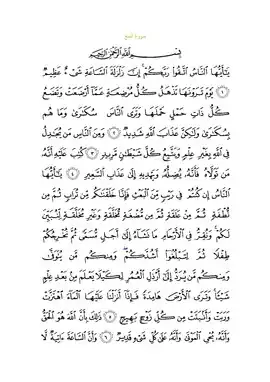 سورة الحج
بِسْمِ اللَّهِ الرَّحْمَٰنِ الرَّحِيمِ
يَٰٓأَيُّهَا النَّاسُ اتَّقُوا رَبَّكُمْ إِنَّ زَلْزَلَةَ السَّاعَةِ شَىْءٌ عَظِيمٌ
١ يَوْمَ تَرَوْنَهَا تَذْهَلُ كُلُّ مُرْضِعَةٍ عَمَّا أَرْضَعَتْ وَتَضَعُ
كُلُّ ذَاتِ حَمْلٍ حَمْلَهَا وَتَرَى النَّاسَ سُكَٰرَىٰ وَمَا هُم
بِسُكَٰرَىٰ وَلَٰكِنَّ عَذَابَ اللَّهِ شَدِيدٌ ٢ وَمِنَ النَّاسِ مَن يُجَٰدِلُ
فِى اللَّهِ بِغَيْرِ عِلْمٍ وَيَتَّبِعُ كُلَّ شَيْطَٰنٍ مَّرِيدٍ ٣ كُتِبَ عَلَيْهِ أَنَّهُ
مَن تَوَلَّاهُ فَأَنَّهُ يُضِلُّهُ وَيَهْدِيهِ إِلَىٰ عَذَابِ السَّعِيرِ ٤ يَٰٓأَيُّهَا
النَّاسُ إِن كُنتُمْ فِى رَيْبٍ مِّنَ الْبَعْثِ فَإِنَّا خَلَقْنَٰكُم مِّن تُرَابٍ ثُمَّ مِن
نُّطْفَةٍ ثُمَّ مِنْ عَلَقَةٍ ثُمَّ مِن مُّضْغَةٍ مُّخَلَّقَةٍ وَغَيْرِ مُخَلَّقَةٍ لِّنُبَيِّنَ
لَكُمْ وَنُقِرُّ فِى الْأَرْحَامِ مَا نَشَآءُ إِلَىٰٓ أَجَلٍ مُّسَمًّى ثُمَّ نُخْرِجُكُمْ
طِفْلًا ثُمَّ لِتَبْلُغُوٓا أَشُدَّكُمْ وَمِنكُم مَّن يُتَوَفَّىٰ
وَمِنكُم مَّن يُرَدُّ إِلَىٰٓ أَرْذَلِ الْعُمُرِ لِكَيْلَا يَعْلَمَ مِنۢ بَعْدِ عِلْمٍ
شَيْـًٔا وَتَرَى الْأَرْضَ هَامِدَةً فَإِذَآ أَنزَلْنَا عَلَيْهَا الْمَآءَ اهْتَزَّتْ
وَرَبَتْ وَأَنۢبَتَتْ مِن كُلِّ زَوْجٍۭ بَهِيجٍ ٥ ذَٰلِكَ بِأَنَّ اللَّهَ هُوَ الْحَقُّ
وَأَنَّهُ يُحْىِ الْمَوْتَىٰ وَأَنَّهُ عَلَىٰ كُلِّ شَىْءٍ قَدِيرٌ ٦ وَأَنَّ السَّاعَةَ ءَاتِيَةٌ لَّا